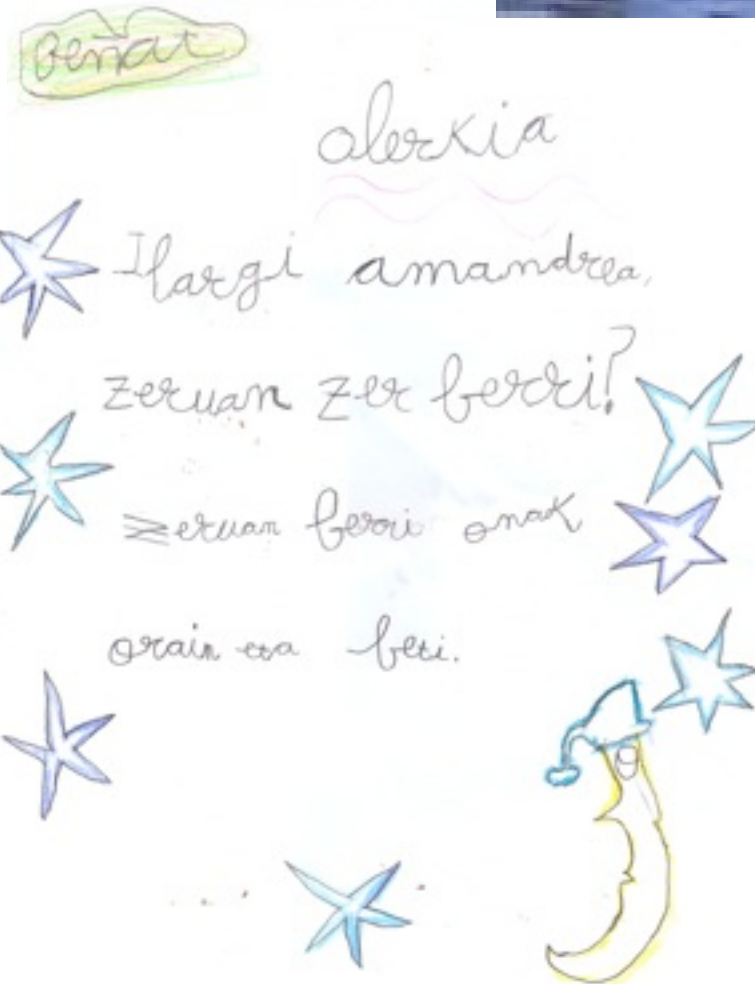 Beñat
olerkia
Ilargi amandrea,
zeruan zer berri?
Zeruan berri onak
orain eta beti.